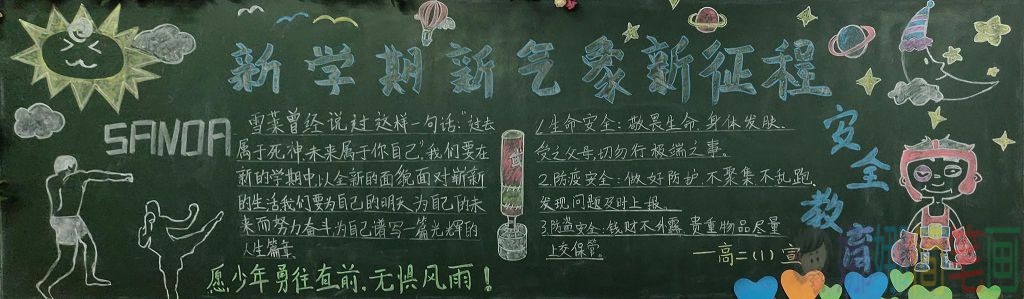 新学期新气象新征程
SANDA
雪莱曾经说过这样一句话:“过去
属于死神,未来属于你自己”我们要在
新的学期中,以全新的面貌面对崭新
的生活我们要为自己的明天,为自己的未
来而努力奋斗为自己谱写一篇光辉的
人生篇章
愿少年勇往直前,无惧风雨!
1.生命安全:敬畏生命,身体发肤,
受之父母,切勿行极端之事。
2.防疫安全:做好防护,不聚集不乱跑,
发现问题及时上报。
3.防盗安全:钱财不外露,贵重物品尽量
上交保管。
一高二(1)宣
安全教育